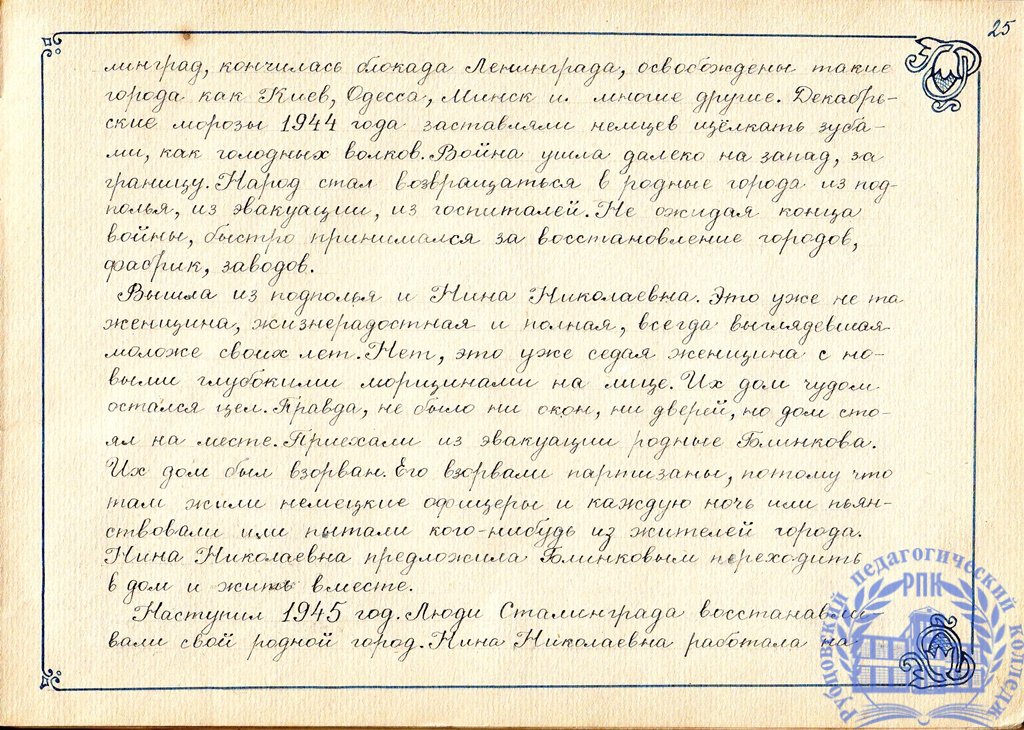 25
линград, кончилась блокада Ленинграда, освобождены такие
города как Киев, Одесса, Минск и многие другие. Декабрь-
ские морозы 1944 года заставляли немцев щёлкать зуба-
ми, как голодных волков. Война ушла далеко на запад, за
границу. Народ стал возвращаться в родные города из под-
полья, из эвакуации, из госпиталей. Не ожидая конца
войны, быстро принимался за восстановление городов,
фабрик, заводов.
Вышла из подполья и Нина Николаевна. Это уже не та
женщина, жизнерадостная и полная, всегда выглядевшая
моложе своих лет. Нет, это уже седая женщина с но-
выми глубокими морщинами на лице. Их дом чудом
остался цел. Правда, не было ни окон, ни дверей, но дом сто-
ял на месте. Приехали из эвакуации родные Блинкова.
Их дом был взорван. Его взорвали партизаны, потому что
там жили немецкие офицеры и каждую ночь или пьян-
ствовали или пытали кого-нибудь из жителей города.
Нина Николаевна предложила Блинковым переходить
в дом и жить вместе.
Наступил 1945 год. Люди Сталинграда восстанавли-
вали свой родной город. Нина Николаевна работала на
Рубцовский педагогический колледж
РПК